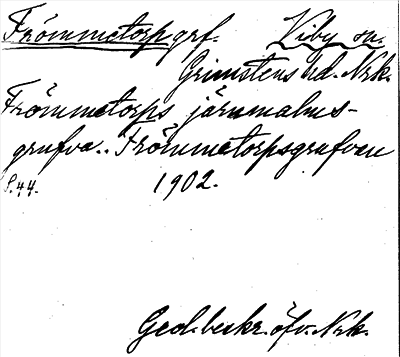 Frömmetorpsgrf. Viby sn.
Grimstens hd. Nrk.
Frömmetorps järnmalms-
grufva.. Frömmetorpsgrufvan
S.44. 1902.
Geol. beskr. öfv. Nrk.